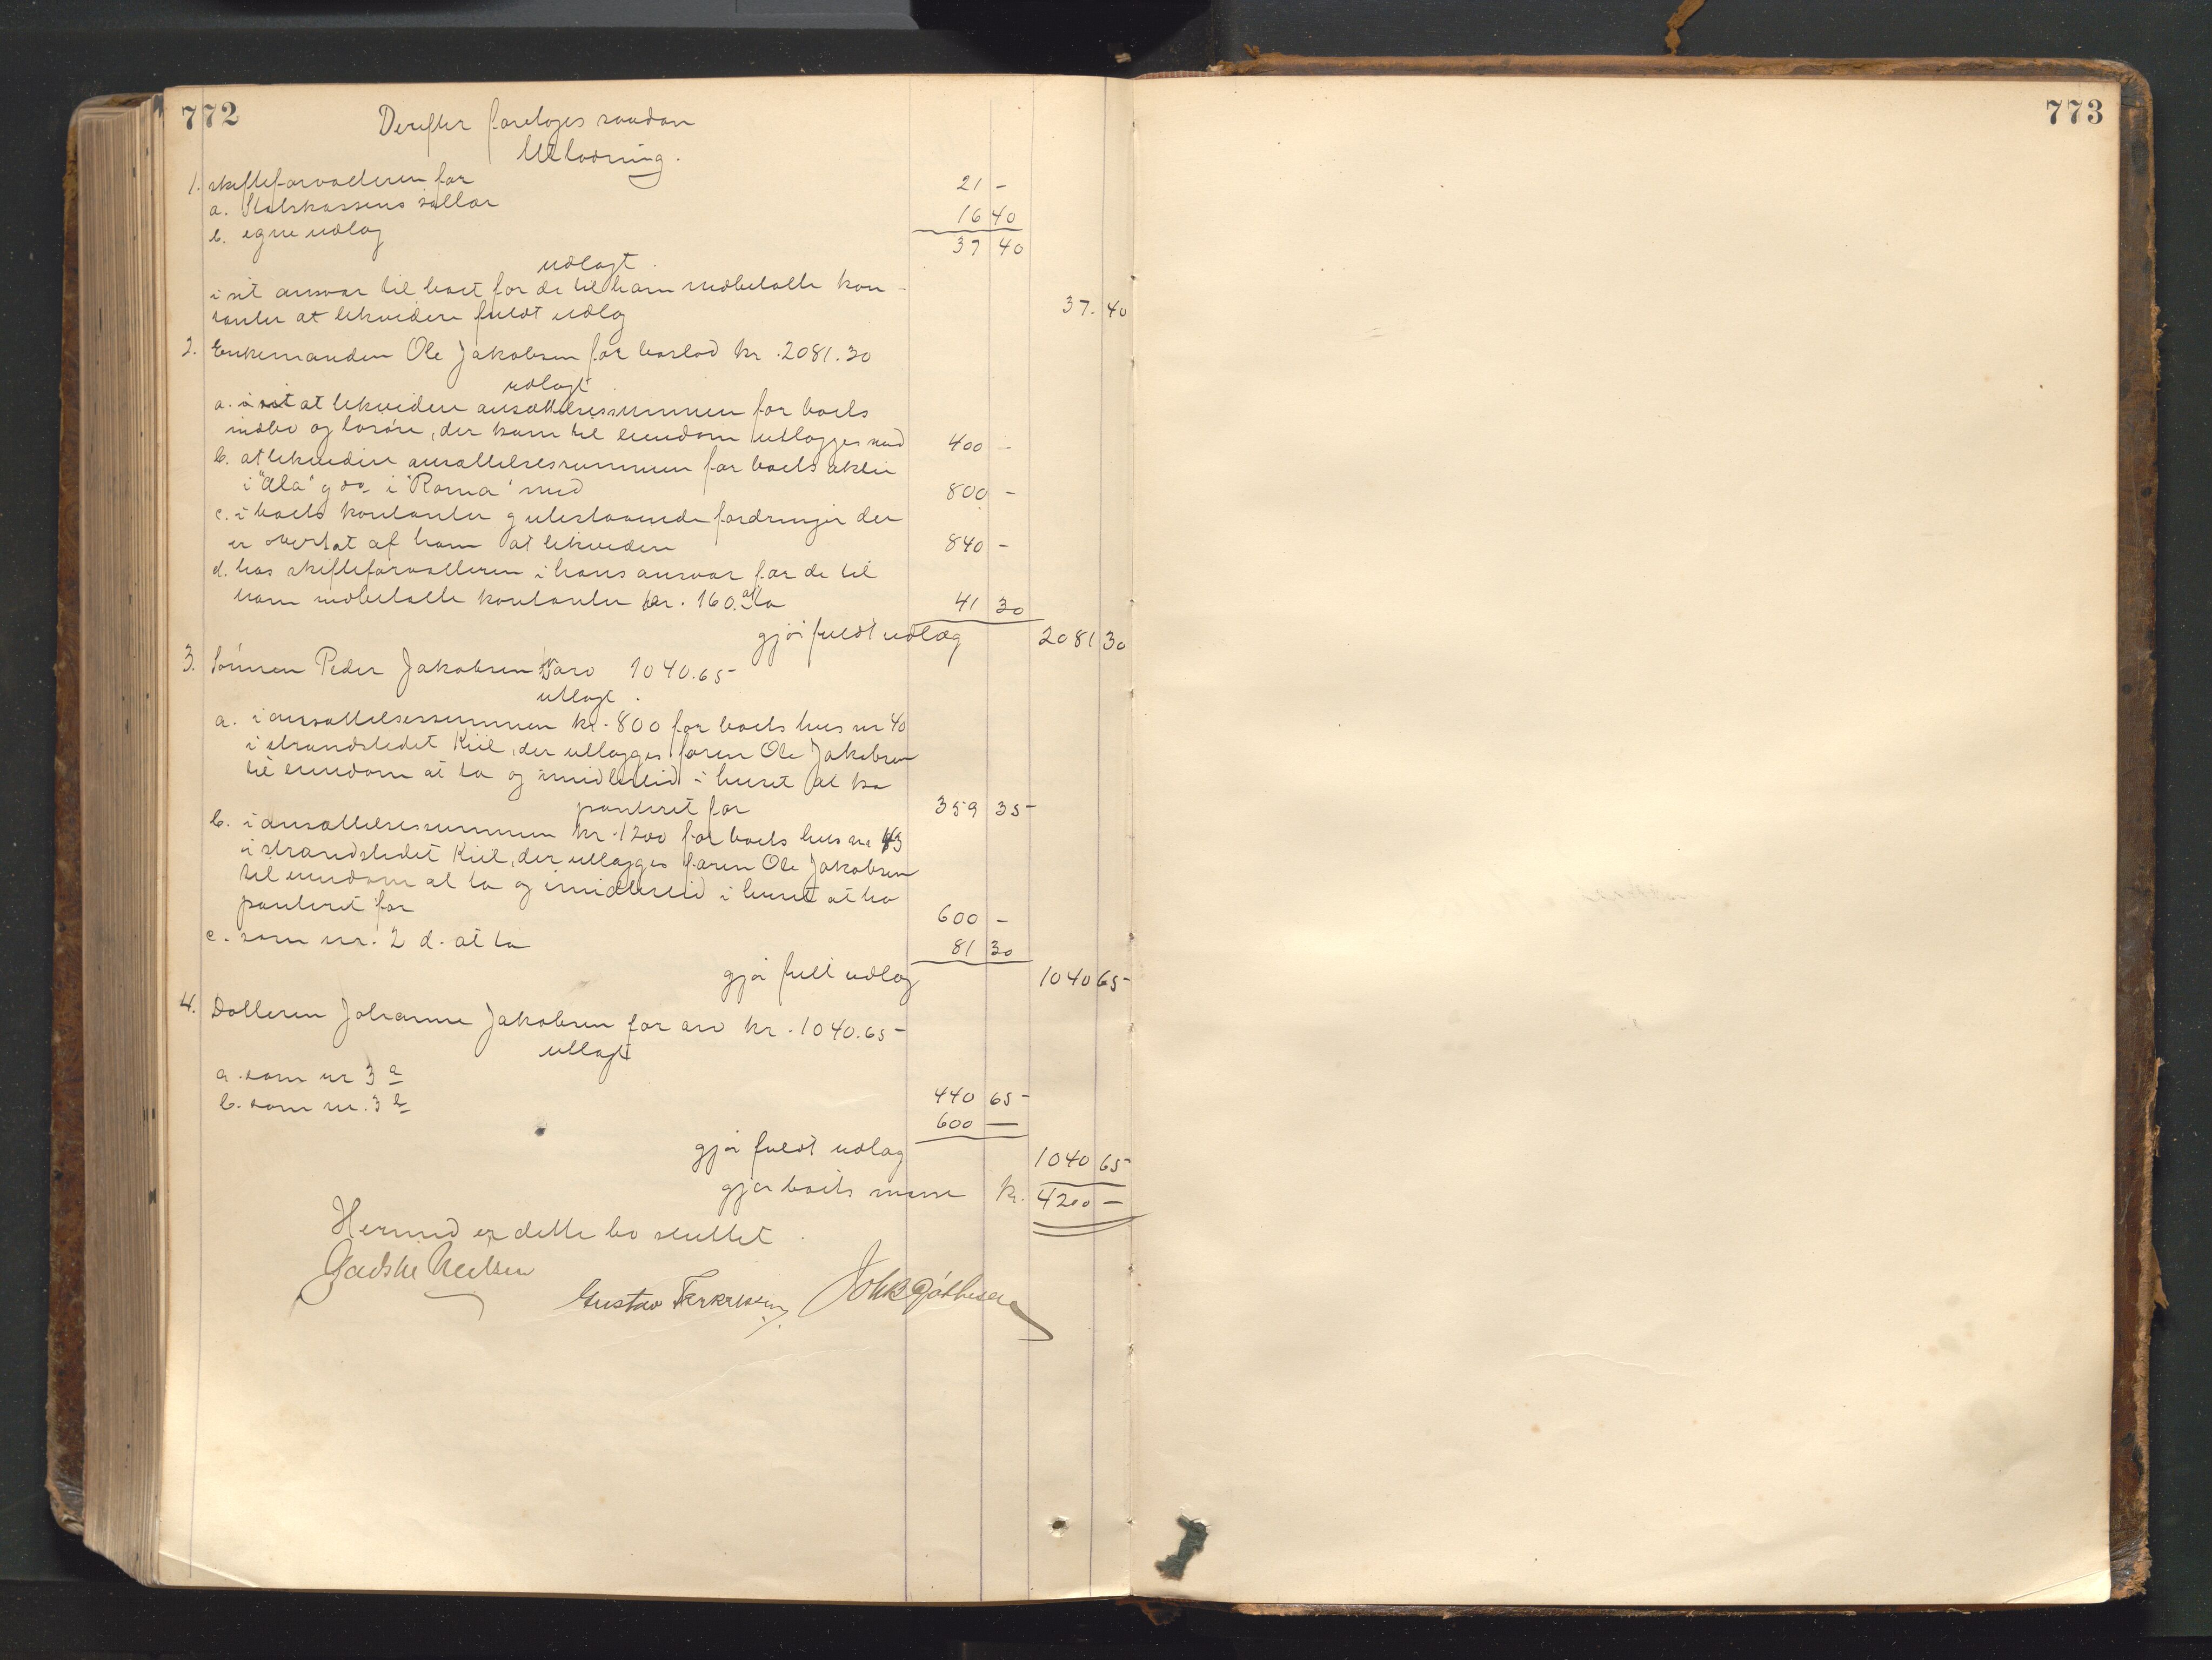 772
773
Derefter foretoges saadan
Utlodning.
1. skifteforvalteren for
a. Statskassens sallær 21 -
b. egne udlæg 16 40
37 40
udlagt
i sit ansvar til boet for de til ham indbetalte kon-
tanter at likvidere fuldt udlæg 37. 40
2. Enkemanden Ole Jakobsen for boslod kr. 2081.30
udlagt
a. i at likvidere ansættelsessummen for boets
indbo og løsøre, der ham til eiendom utlægges med 400 -
b. at likvidere ansættelsessummen for boets aktie
i "Ala" og do i "Roma" med 800 -
c. i boets kontanter og utestaaende fordringer der
er overtat af ham at likvidere 840 -
d. hos skifteforvalteren i hans ansvar for de til
ham indbetalte kontanter kr. 160. at ta 41 30
gjør fuldt udlæg 2081 30
3. Sønnen Peder Jakobsen arv 1040.65
utlagt
a. i ansættelsessummen kr. 800 for boets hus nr 40
i strandstedet Kiil, der utlægges faren Ole Jakobsen
til eiendom at ta og imidlertid i huset at ha
panteret for 359 35
b. i ansættelsessummen kr. 1200 for boets hus nr 43
i strandstedet Kiil, der utlægges faren Ole Jakobsen
til eiendom at ta og imidlertid i huset at ha
panteret for 600 -
c. som nr. 2 d. at ta 81 30
gjør fuld udlæg 1040 65
4. Datteren Johanne Jakobsen for arv kr. 1040.65
utlagt
a. som nr 3 a 440 65
b. som nr. 3 b 600 —
gjør fuldt udlæg 1040 65
gjør boets masse kr. 4200 —
Hermed er dette bo sluttet.
Gustav Terkelsen